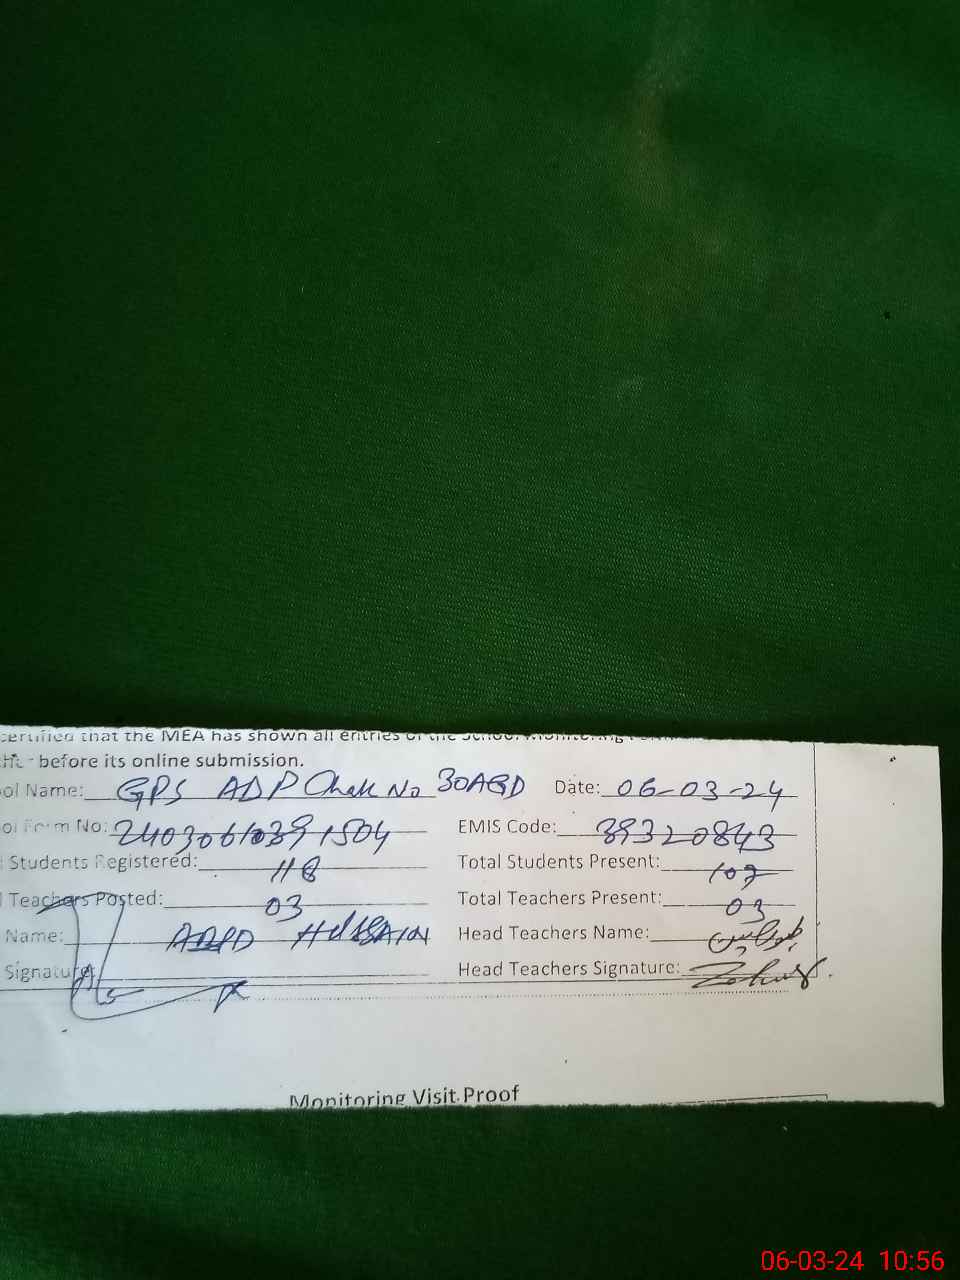 certified that the MEA has shown all entries of the School Monitoring
before its online submission.
ol Name: GPS ADP Chak No 30AGD Date: 06-03-24
ol Form No: 2403061039 1504 EMIS Code: 39320843
Students Registered: 118 Total Students Present: 107
Teachers Posted: 03 Total Teachers Present: 03
Name: ABID HUSSAIN Head Teachers Name:
Signature: Head Teachers Signature:
Monitoring Visit Proof
06-03-24 10:56